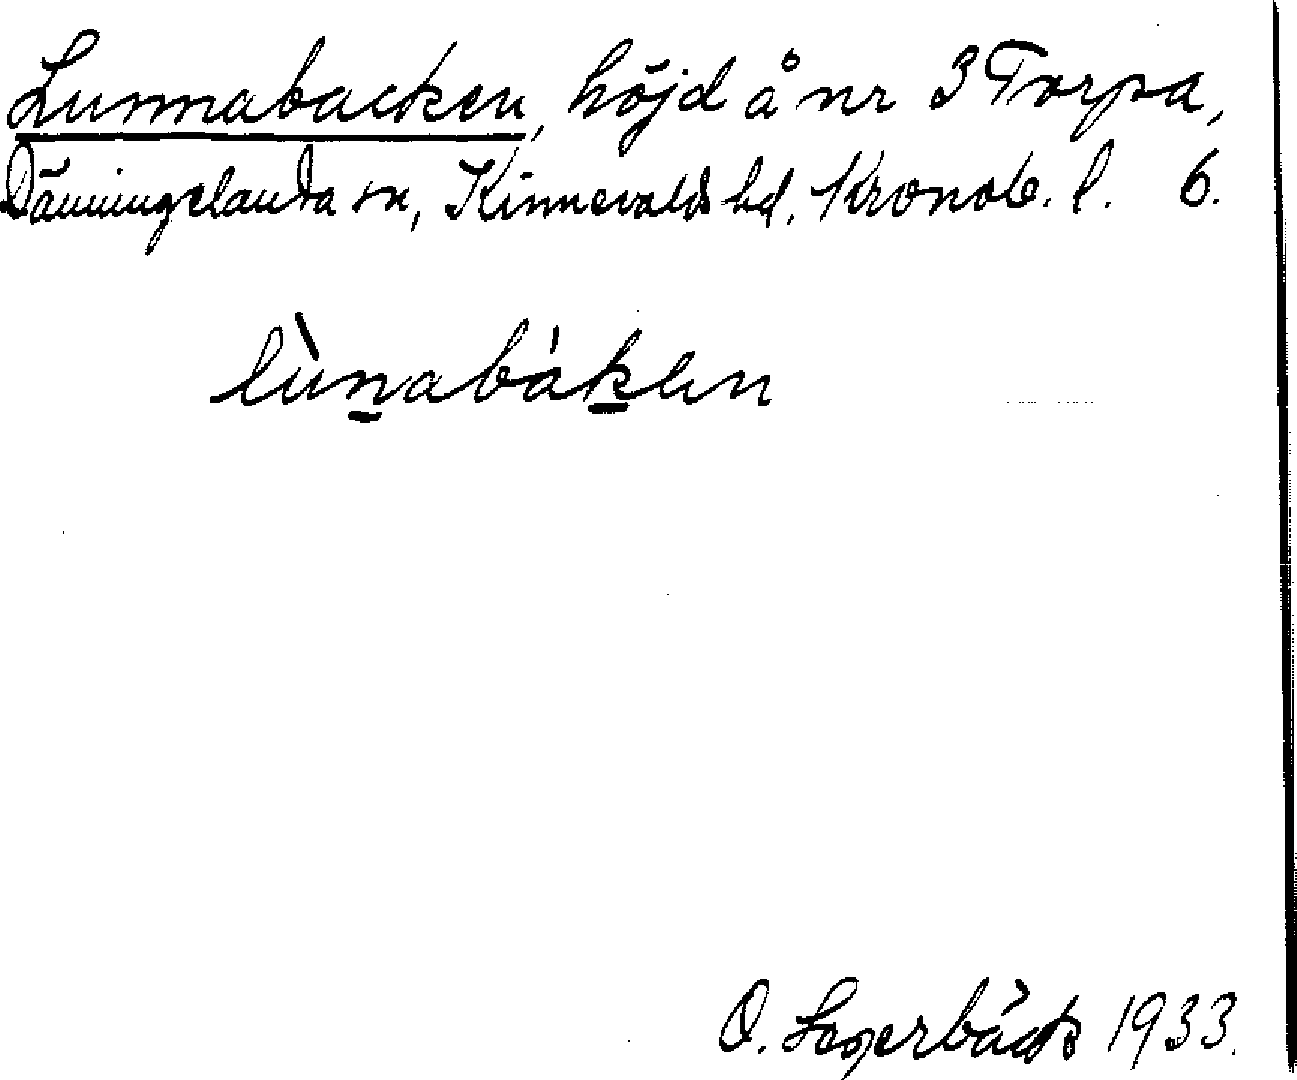 Lunnabacken, höjd å nr 3 Torpa,
Dänningelanda sn, Kinnevalds hd. Kronob. l. 6.
lùnabákən
O. Lagerbäck 1933.